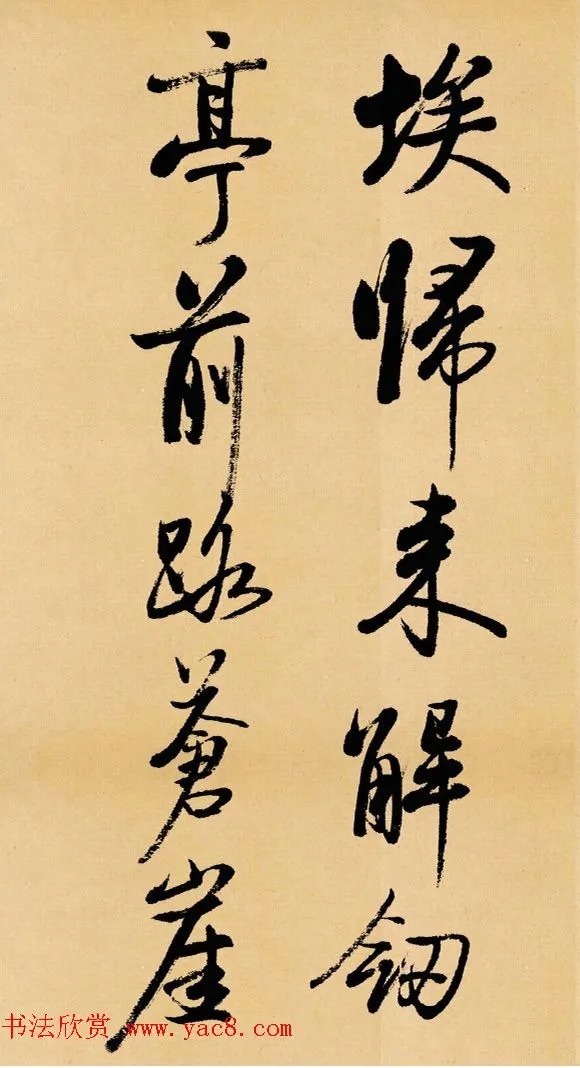 埃歸来解劔
亭前路蒼崖
书法欣赏 www.yac8.com